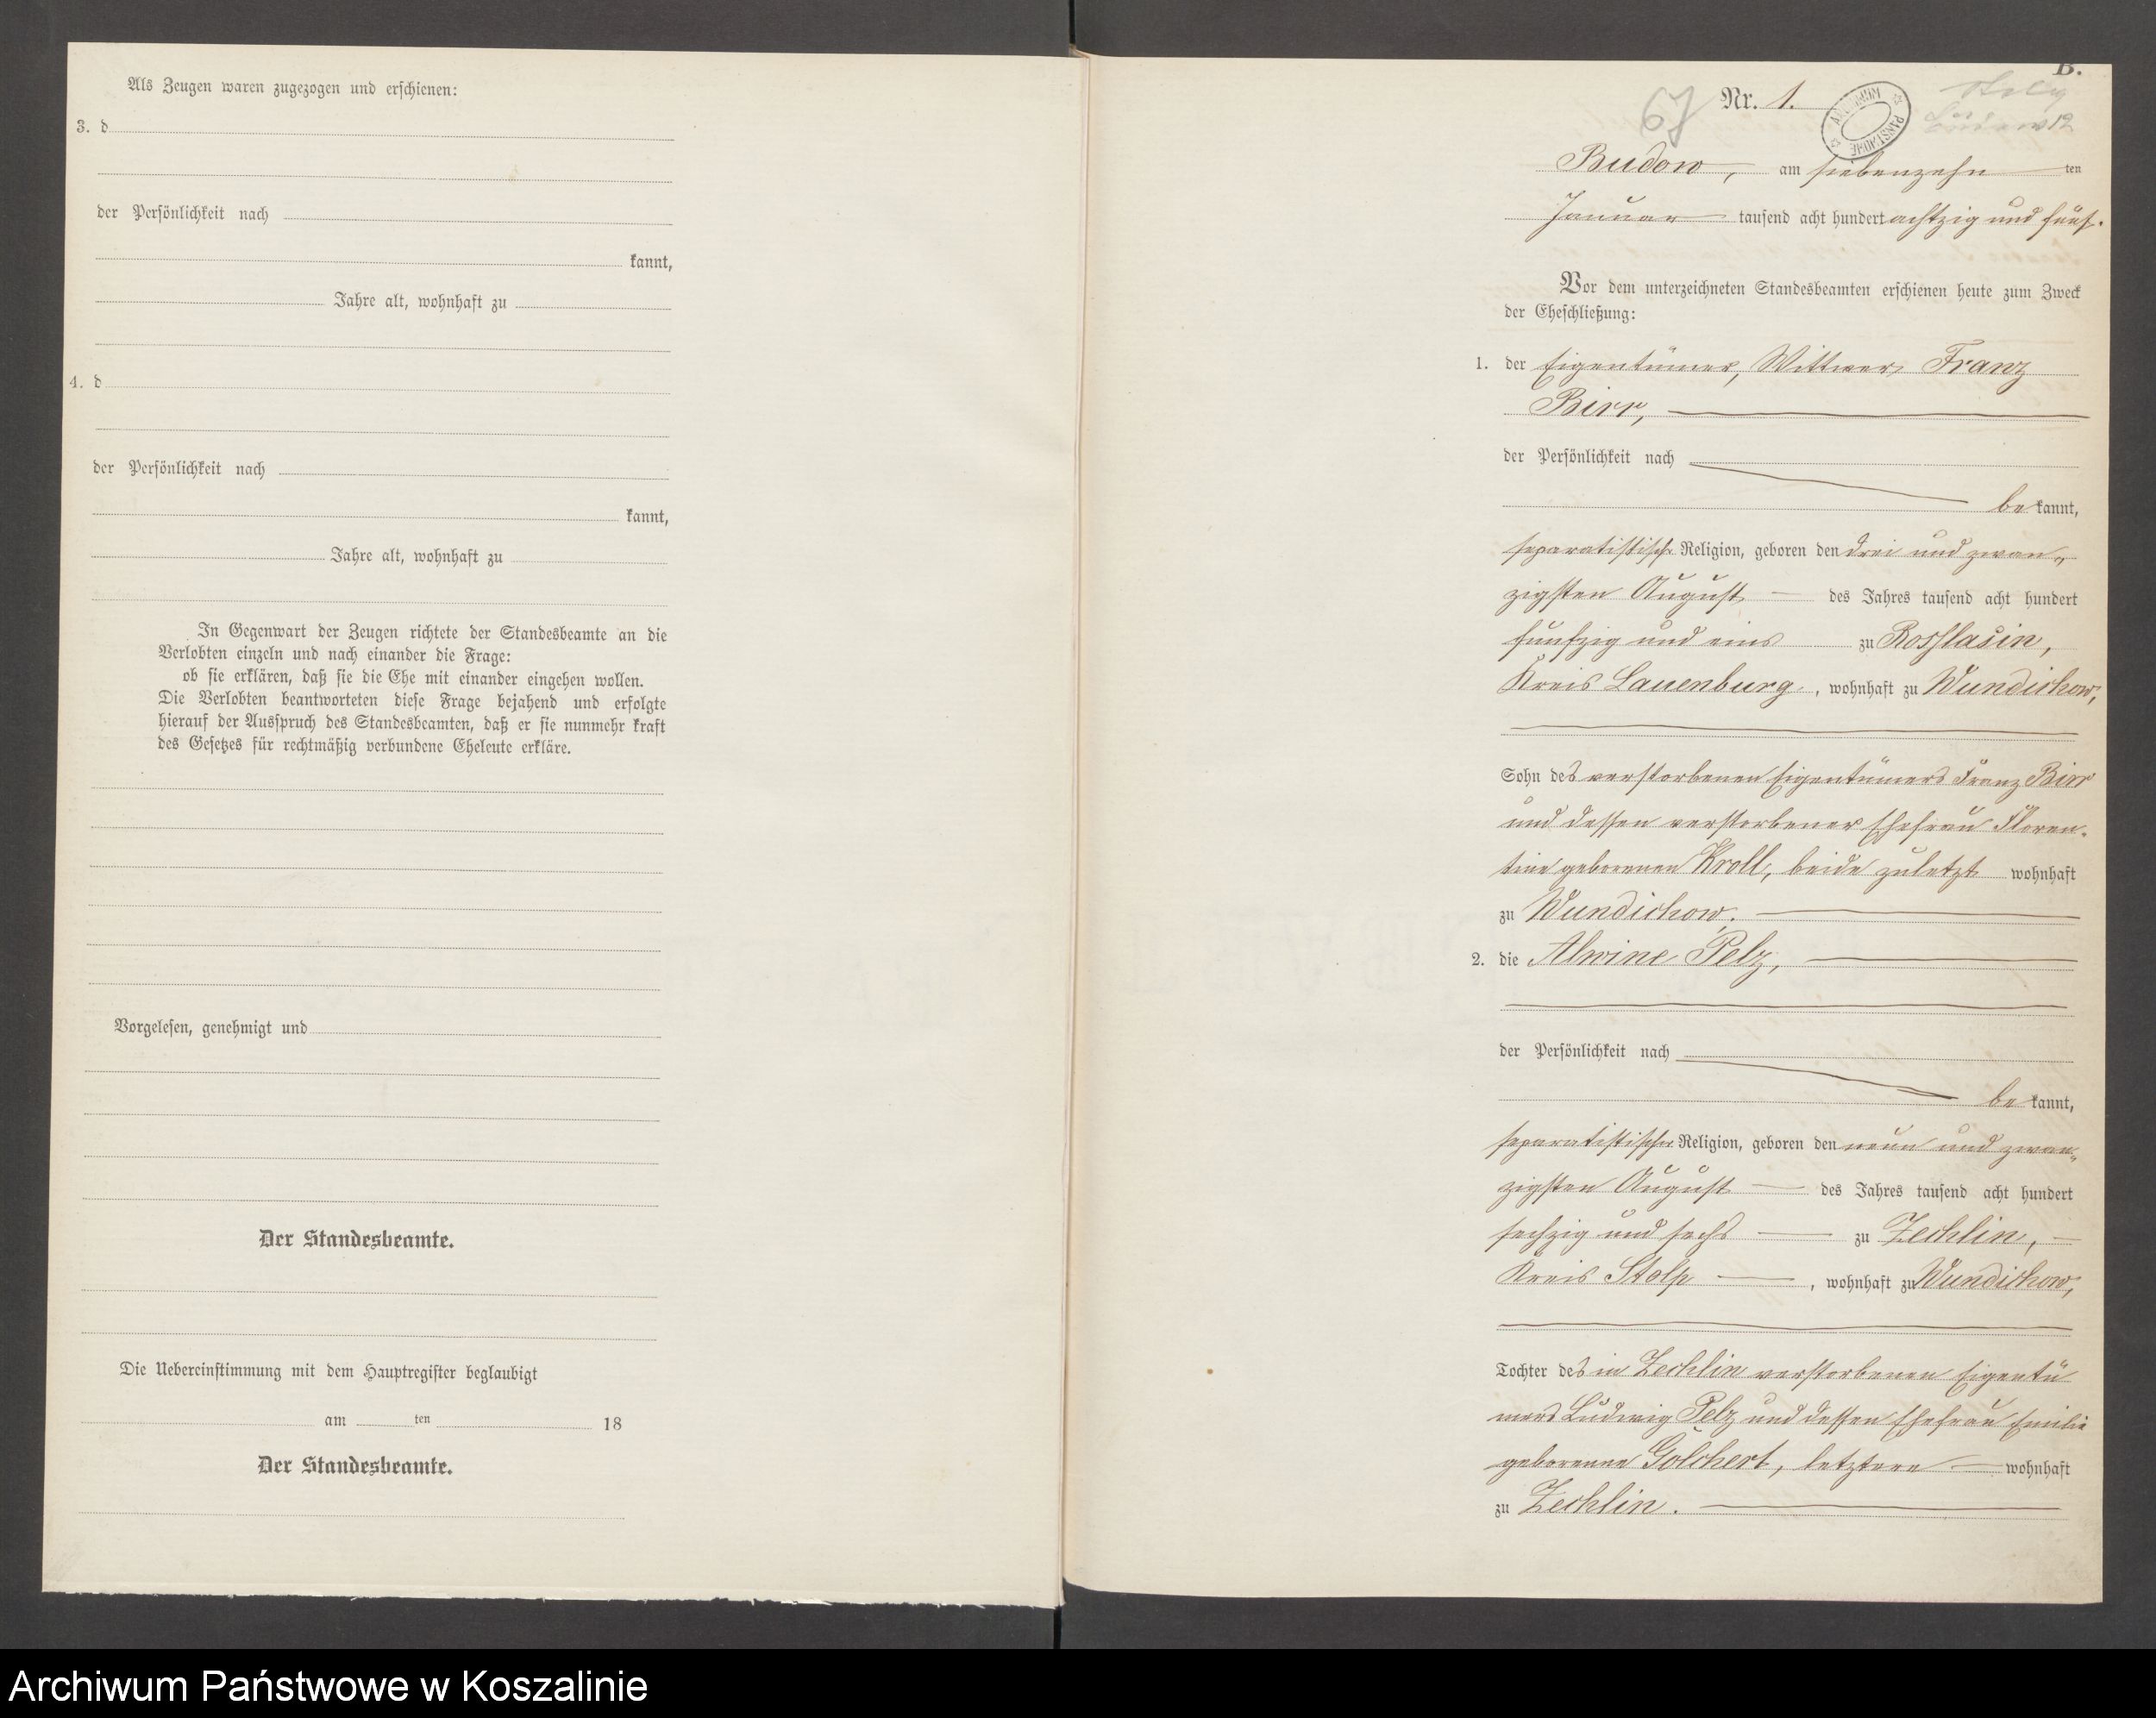 Als Zeugen waren zugezogen und erschienen:
3. d
der Persönlichkeit nach
kannt,
Jahre alt, wohnhaft zu
4. d
der Persönlichkeit nach
kannt,
Jahre alt, wohnhaft zu
In Gegenwart der Zeugen richtete der Standesbeamte an die
Verlobten einzeln und nach einander die Frage:
ob sie erklären, daß sie die Ehe mit einander eingehen wollen.
Die Verlobten beantworteten diese Frage bejahend und erfolgte
hierauf der Ausspruch des Standesbeamten, daß er sie nunmehr kraft
des Gesetzes für rechtmäßig verbundene Eheleute erkläre.
Vorgelesen, genehmigt und
Der Standesbeamte.
Die Uebereinstimmung mit dem Hauptregister beglaubigt
am ten 18
Der Standesbeamte.
B.
67 Nr. 1.
ARCHIWUM PAŃSTWOWE
12
Budow, am siebenzehn ten
Januar tausend acht hundert achtzig und fünf.
Vor dem unterzeichneten Standesbeamten erschienen heute zum Zweck
der Eheschließung:
1. der Eigentümer, Wittwer Franz
Birr,
der Persönlichkeit nach
be kannt,
separatistischer Religion, geboren den drei und zwan-
zigsten August des Jahres tausend acht hundert
funfzig und eins zu Rosslasin,
Kreis Lauenburg, wohnhaft zu Wundichow,
Sohn des verstorbenen Eigentümers Franz Birr
und dessen verstorbener Ehefrau Floren-
tine geborenen Kroll, beide zuletzt wohnhaft
zu Wundichow.
2. die Alwine Pelz,
der Persönlichkeit nach
be kannt,
separatistischer Religion, geboren den neun und zwan-
zigsten August des Jahres tausend acht hundert
sechzig und sechs zu Zechlin,
Kreis Stolp, wohnhaft zu Wundichow,
Tochter des in Zechlin verstorbenen Eigentü
mers Ludwig Pelz und dessen Ehefrau Emilie
geborenen Golchert, letztere wohnhaft
zu Zechlin.
Archiwum Państwowe w Koszalinie